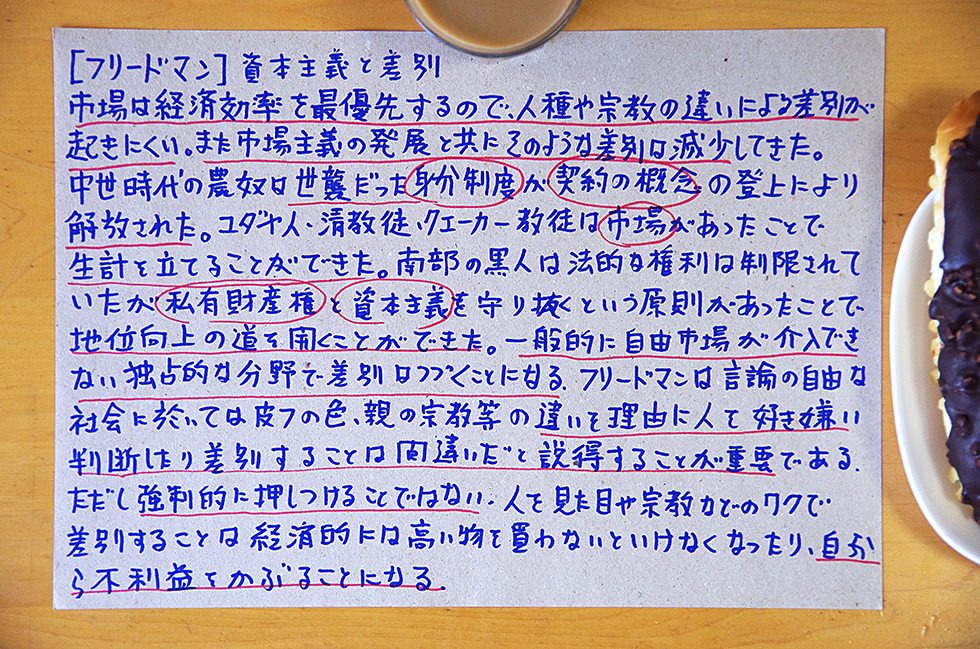 [フリードマン]資本主義と差別
市場は経済効率を最優先するので、人種や宗教の違いによる差別が
起きにくい。また市場主義の発展と共にそのような差別は減少してきた。
中世時代の農奴は世襲だった身分制度が契約の概念の登上により
解放された。ユダヤ人・清教徒・クエーカー教徒は市場があったことで
生計を立てることができた。南部の黒人は法的な権利は制限されて
いたが私有財産権と資本主義を守り抜くという原則があったことで
地位向上の道を開くことができた。一般的に自由市場が介入でき
ない独占的な分野で差別はつづくことになる。フリードマンは言論の自由な
社会に於いては皮フの色、親の宗教等の違いを理由に人を好き嫌い
判断したり差別することは間違いだと説得することが重要である。
ただし強制的に押しつけることではない。人を見た目や宗教などのワクで
差別することは経済的には高い物を買わないといけなくなったり、自分か
ら不利益をかぶることになる。